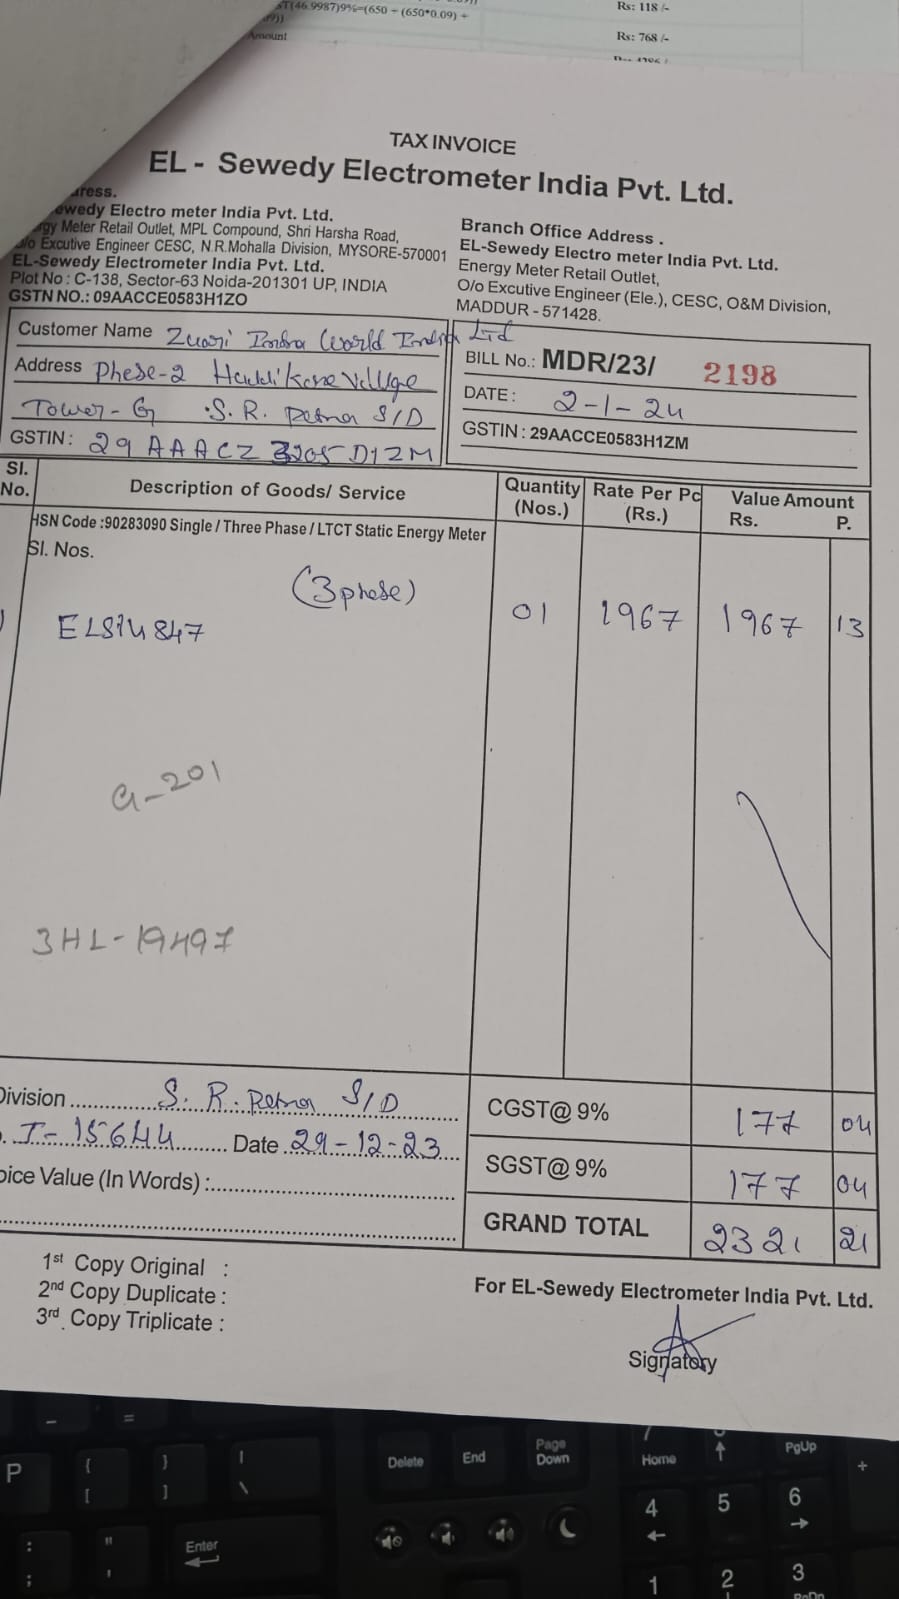 ST(46.9987)9%=(650 + (650*0.09) +
09))
Amount
Rs: 118 /-
Rs: 768 /-
TAX INVOICE
EL - Sewedy Electrometer India Pvt. Ltd.
ress.
ewedy Electro meter India Pvt. Ltd.
rgy Meter Retail Outlet, MPL Compound, Shri Harsha Road,
/o Excutive Engineer CESC, N.R.Mohalla Division, MYSORE-570001
EL-Sewedy Electrometer India Pvt. Ltd.
Plot No : C-138, Sector-63 Noida-201301 UP, INDIA
GSTN NO.: 09AACCE0583H1ZO
Branch Office Address .
EL-Sewedy Electro meter India Pvt. Ltd.
Energy Meter Retail Outlet,
O/o Excutive Engineer (Ele.), CESC, O&M Division,
MADDUR - 571428.
Customer Name Zuari Infra World India Ltd
Address Phese-2 Village
Tower-G S. R. S/D
GSTIN: 29 AAACZ 3205 D1ZM
BILL No.: MDR/23/ 2198
DATE: 2-1-24
GSTIN : 29AACCE0583H1ZM
Sl. No. Description of Goods/ Service Quantity (Nos.) Rate Per Pc (Rs.) Value Amount Rs. P.
HSN Code :90283090 Single / Three Phase / LTCT Static Energy Meter
Sl. Nos.
(3 phese)
01 1967 1967 13
G-201
3HL-19497
Division S. R. S/D
CGST@ 9% 177 04
I-15644 Date 29-12-23
SGST@ 9% 177 04
oice Value (In Words) :
GRAND TOTAL 2321 21
1st Copy Original :
2nd Copy Duplicate :
3rd Copy Triplicate :
For EL-Sewedy Electrometer India Pvt. Ltd.
Signatory
- =
P { [ } ] | \ Delete End Page Down 7 Home ↑ PgUp +
4 ← 5 6 →
: ; " ' Enter
1 2 3 PgDn